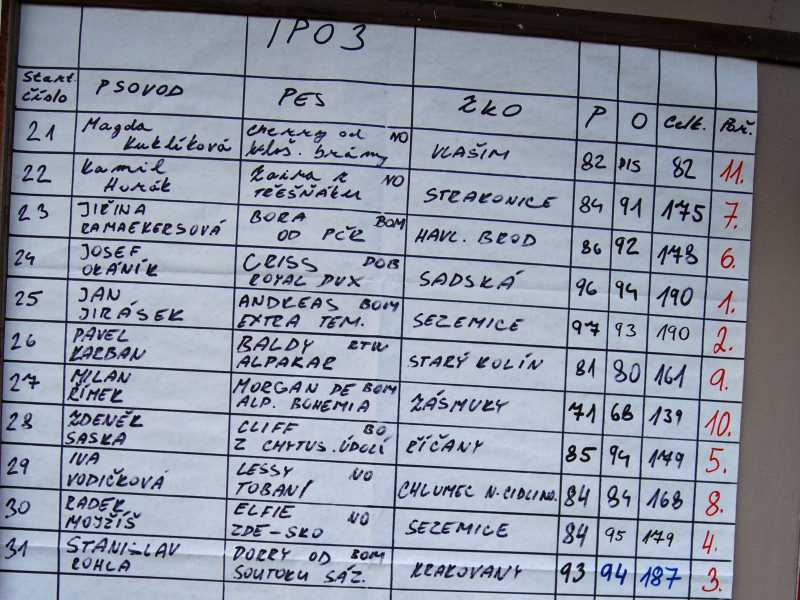 IPO3
Start. číslo PSOVOD PES ZKO P O Celk. Poř.
21 Magda Kuklíková Cherry od NO VLAŠIM 82 DIS 82 11.
Kloš. brány
22 Kamil Horák Zaira z NO TŘEŠŇÁKU STRAKONICE 84 91 175 7.
23 JIŘINA RAMAEKERSOVÁ BORA BOM OD PČR HAVL. BROD 86 92 178 6.
24 JOSEF OKÁNÍK CRISS DOB ROYAL DUX SADSKÁ 96 94 190 1.
25 JAN JIRÁSEK ANDREAS BOM EXTRA TEM. SEZEMICE 97 93 190 2.
26 PAVEL KARBAN BALDY RTW ALPAKAR STARÝ KOLÍN 81 80 161 9.
27 MILAN ŘÍMEK MORGAN DE BOM ALP. BOHEMIA ZÁSMUKY 71 68 139 10.
28 ZDENĚK SASKA CLIFF BO Z CHYTUS. ÚDOLÍ ŘÍČANY 85 94 179 5.
29 IVA VODIČKOVÁ LESSY NO TOBANI CHLUMEC N. CIDLINO. 84 84 168 8.
30 RADEK MOJŽÍŠ ELFIE NO ZDE-SKO SEZEMICE 84 95 179 4.
31 STANISLAV ROHLA DORRY OD BOM SOUTOKU SÁZ. KRAKOVANY 93 94 187 3.